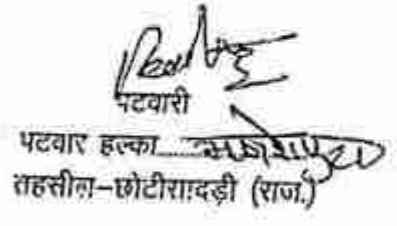 पटवारी
पटवार हल्का
तहसील-छोटीसादड़ी (राज.)